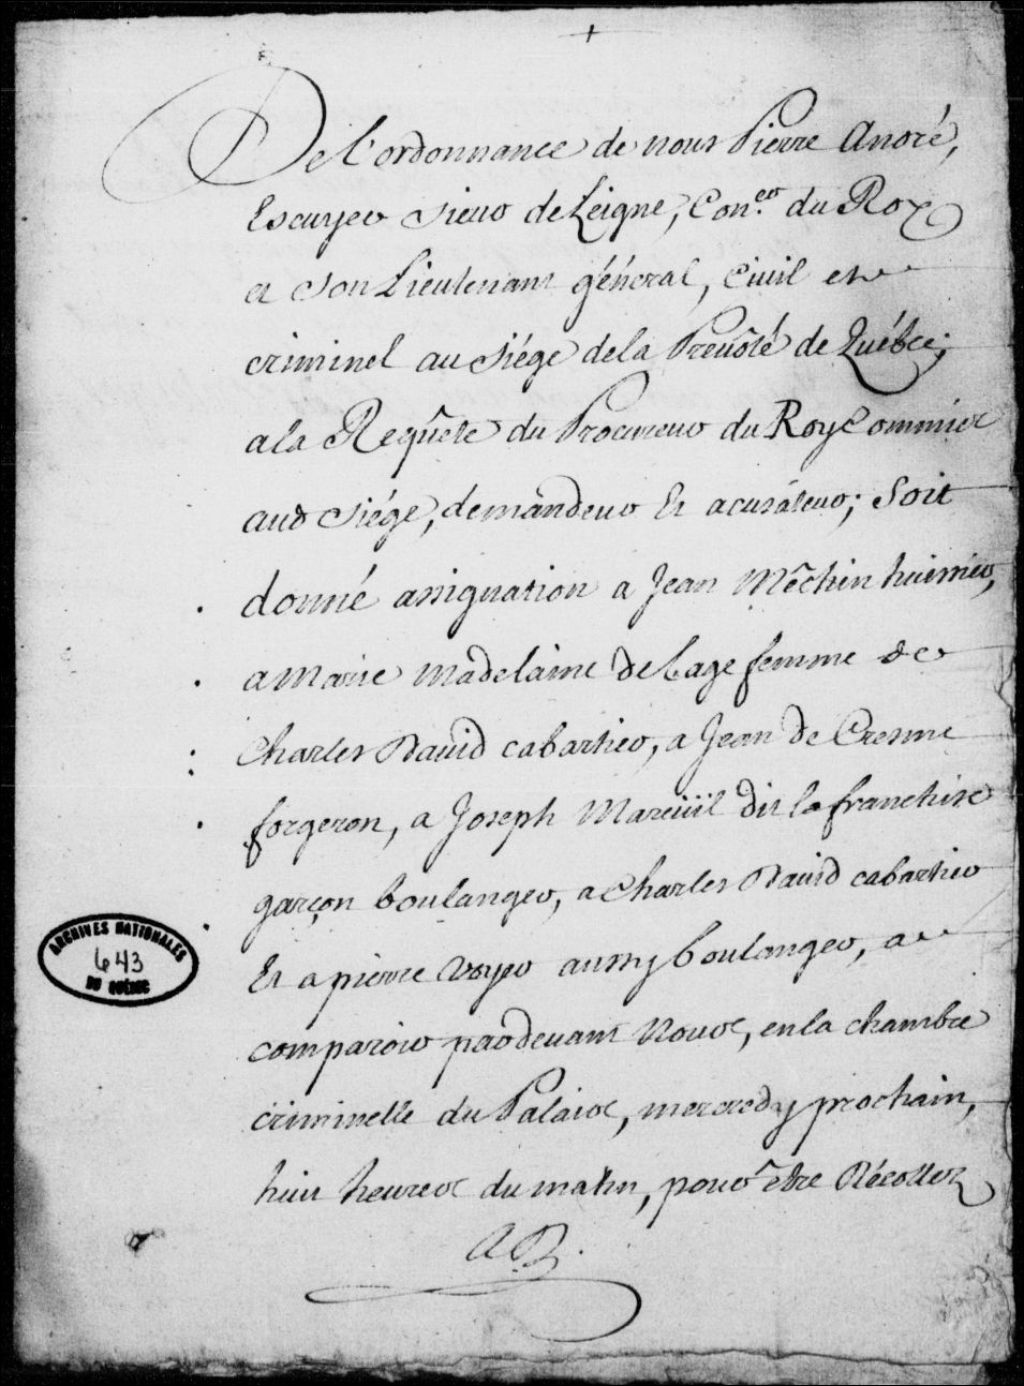 De l'ordonnance de nous Pierre André,
Escuyer sieur de Leigne, Con.er du Roy
et son Lieutenant général, Civil et
criminel au siége dela Prevôté de Québec;
ala Requête du Procureur du Roy Commis
aud siége, demandeur Et acusateur; Soit
donné assignation a Jean Mêchin huissier,
a Marie Madelaine DeLage femme de
Charles David cabartier, a Jean De Cresme
forgeron, a Joseph Mareüil dit la franchise
garçon boulanger, a Charles David cabartier
Et a pierre Voyer aussy boulanger, a
comparoir pardevant Nous, en la chambre
criminelle du Palais, mercredy prochain,
huit heures du matin, pour être Récollez
ARCHIVES NATIONALES
643
DU QUÉBEC